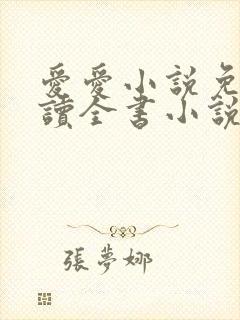 愛愛小說免
讀全書小說
張夢娜